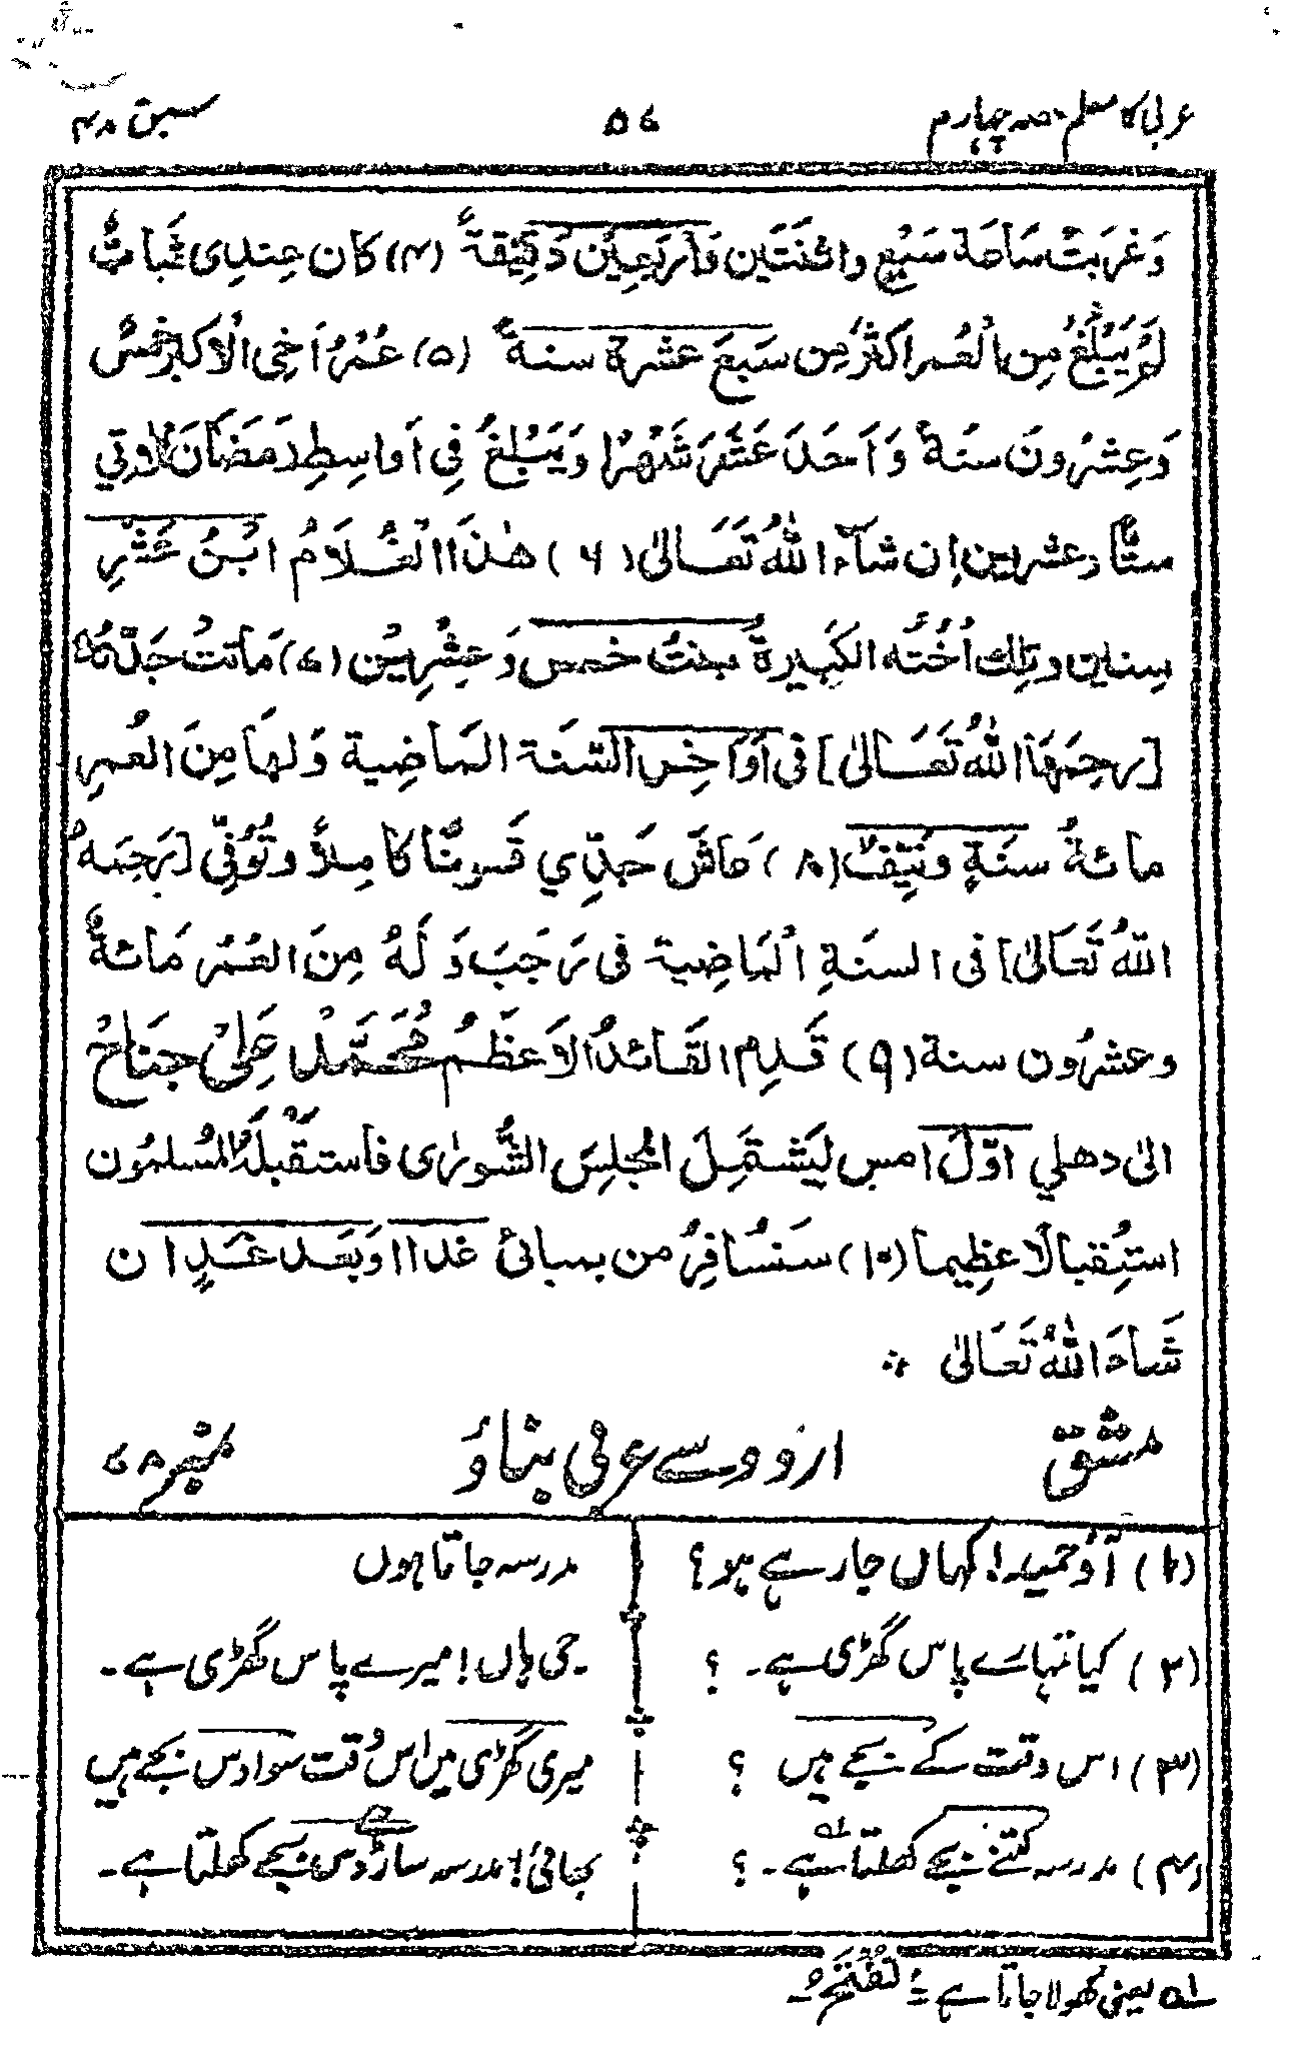 عربی کا معلم حصہ چہارم ۵۷ سبق ۴۸
وَغَرَبَتْ سَاعَة سَبْعٍ واثنَتَين وَأربَعِيْن دَقِيْقَةً (۴) كان عِندِى ثَباتٌ
لَمْ يَبْلُغْ مِن الْعُمر اكثرُ مِن سَبعَ عشرةَ سنةً (۵) عُمْرُ اَخِى الْاَكبرِ خمسٌ
وَعِشرُونَ سنَةً وَ اَحَدَ عَشَرَ شَهْرًا وَيَبْلُغُ فِى اَواسِطِ رَمَضَانَ الاٰتِي
ستًّا وعشرين اِن شَآءَ اللهُ تَعَالىٰ (۶) هٰذَا الْغُلَامُ ابْنُ عَشْرِ
سِنين وتِلك اُخْتُه الكَبِيرةُ بنتُ خمسٍ وَعِشْرِيْن (۷) مَاتَتْ جَدَّتُهُ
[رحِمَهَا اللهُ تَعَالىٰ] فى اَوَاخِر السَّنَة المَاضِية وَلها مِنَ العُمرِ
مائةُ سنَةٍ ونَيِّفٌ (۸) عَاشَ جَدِّي قَرنًا كامِلاً وتُوُفِّى [رَحِمَهُ
اللهُ تَعَالىٰ] فى السنَةِ الْمَاضِية فى رَجَبَ وَلَهُ مِنَ العُمُر مَائةٌ
وعشرُون سنة (۹) قَدِم القَائدُ الاَعظَمُ مُحَمَّد عَلِىْ جنَاحْ
الىٰ دهلي اوّلَ امسِ لِيَشْتَمِلَ المجْلِسَ الشُّورٰى فاستَقْبَلَهُ المُسلمُون
استِقبالًا عظِيما (۱۰) سَنُسَافِرُ من بمبائ غدا اوبَعد غَدٍ ان
شَاءَ اللهُ تَعَالىٰ ⁘
مشق اردو سے عربی بناؤ نمبر ۷۸
(۱) آؤ حمید! کہاں جا رہے ہو؟ مدرسہ جاتا ہوں
(۲) کیا تمہارے پاس گھڑی ہے۔ ؟ جی ہاں! میرے پاس گھڑی ہے۔
(۳) اس وقت کے بجے ہیں ؟ میری گھڑی میں اس وقت سوا دس بجے ہیں
(۴) مدرسہ کتنے بجے کھلتا ہے۔ ؟ بھائی! مدرسہ ساڑھے دس بجے کھلتا ہے۔
۱ه یعنی کھولا جاتا ہے :: تُفْتَحُ۔